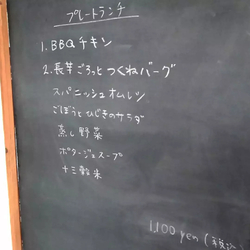 プレートランチ
1. BBQチキン
2. 長芋ごろっとつくねバーグ
スパニッシュオムレツ
ごぼうとひじきのサラダ
蒸し野菜
ポタージュスープ
十三穀米
1,100 yen (税込